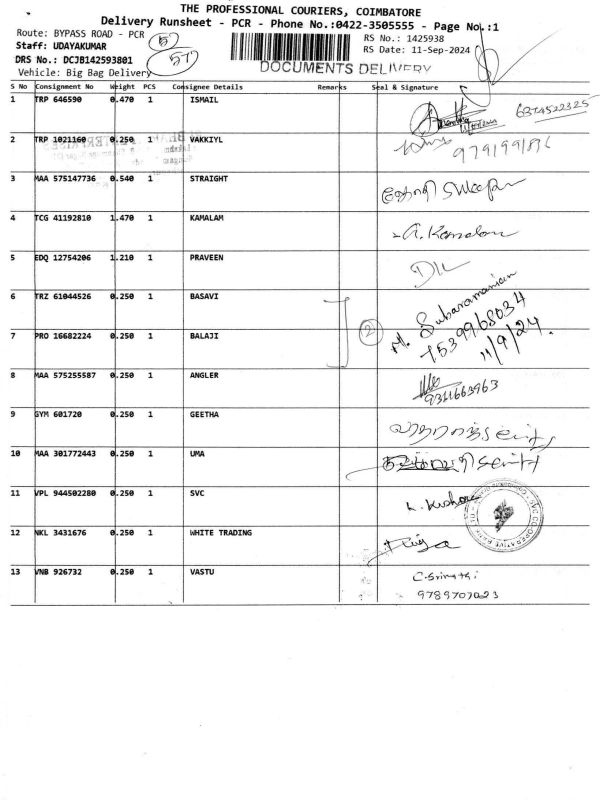 THE PROFESSIONAL COURIERS, COIMBATORE
Delivery Runsheet - PCR - Phone No.:0422-3505555 - Page No.:1
Route: BYPASS ROAD - PCR
RS No.: 1425938
Staff: UDAYAKUMAR
RS Date: 11-Sep-2024
DRS No.: DCJB142593801
57
DOCUMENTS DELIVERY
Vehicle: Big Bag Delivery
S No Consignment No Weight PCS Consignee Details Remarks Seal & Signature
1 TRP 646590 0.470 1 ISMAIL 6374522325
2 TRP 1021160 0.250 1 VAKKIYL
3 MAA 575147736 0.540 1 STRAIGHT
4 TCG 41192810 1.470 1 KAMALAM G. Kamalam
5 EDQ 12754206 1.210 1 PRAVEEN
6 TRZ 61044526 0.250 1 BASAVI M. Subaramanian
2 7539968034
7 PRO 16682224 0.250 1 BALAJI 11/9/24.
8 MAA 575255587 0.250 1 ANGLER 9311663963
9 GYM 601720 0.250 1 GEETHA
10 MAA 301772443 0.250 1 UMA
11 VPL 944502280 0.250 1 SVC K. Kishore
12 NKL 3431676 0.250 1 WHITE TRADING
13 VNB 926732 0.250 1 VASTU C. Srimathi
9789707023